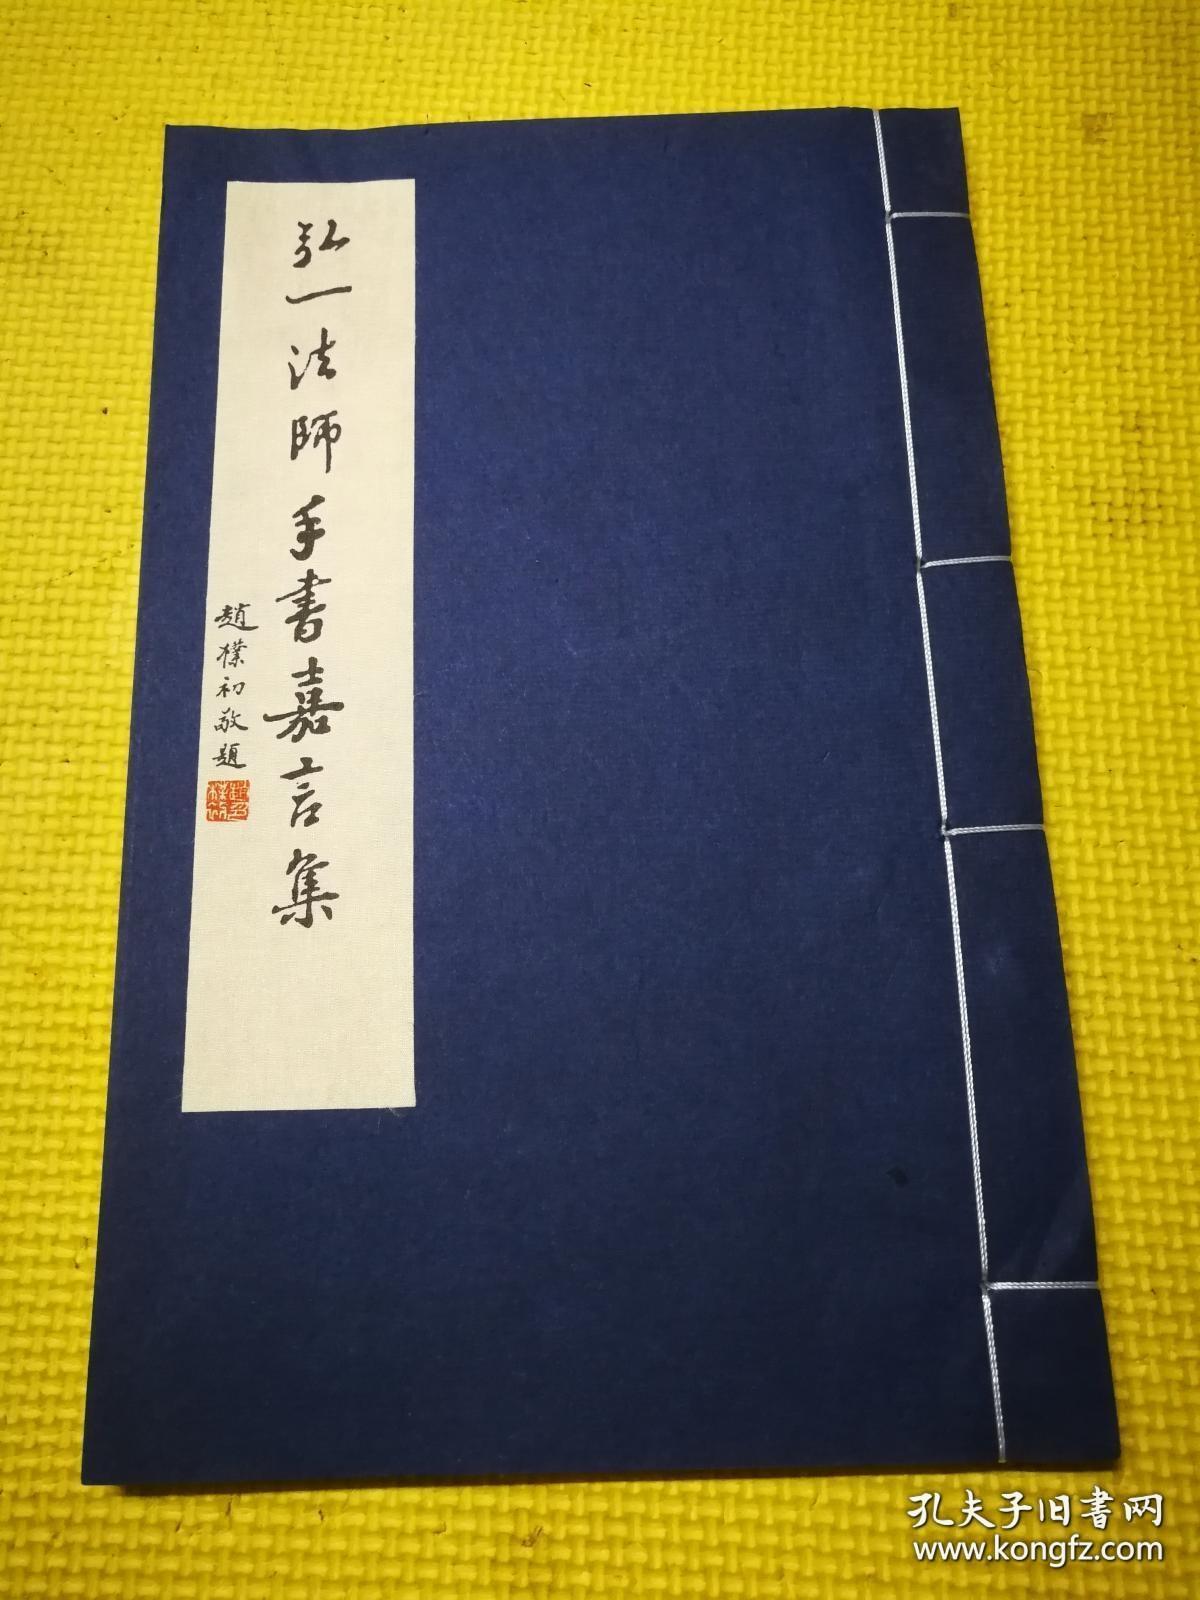 弘一法师手書嘉言集
趙樸初敬題
趙樸初
孔夫子旧書网
www.kongfz.com